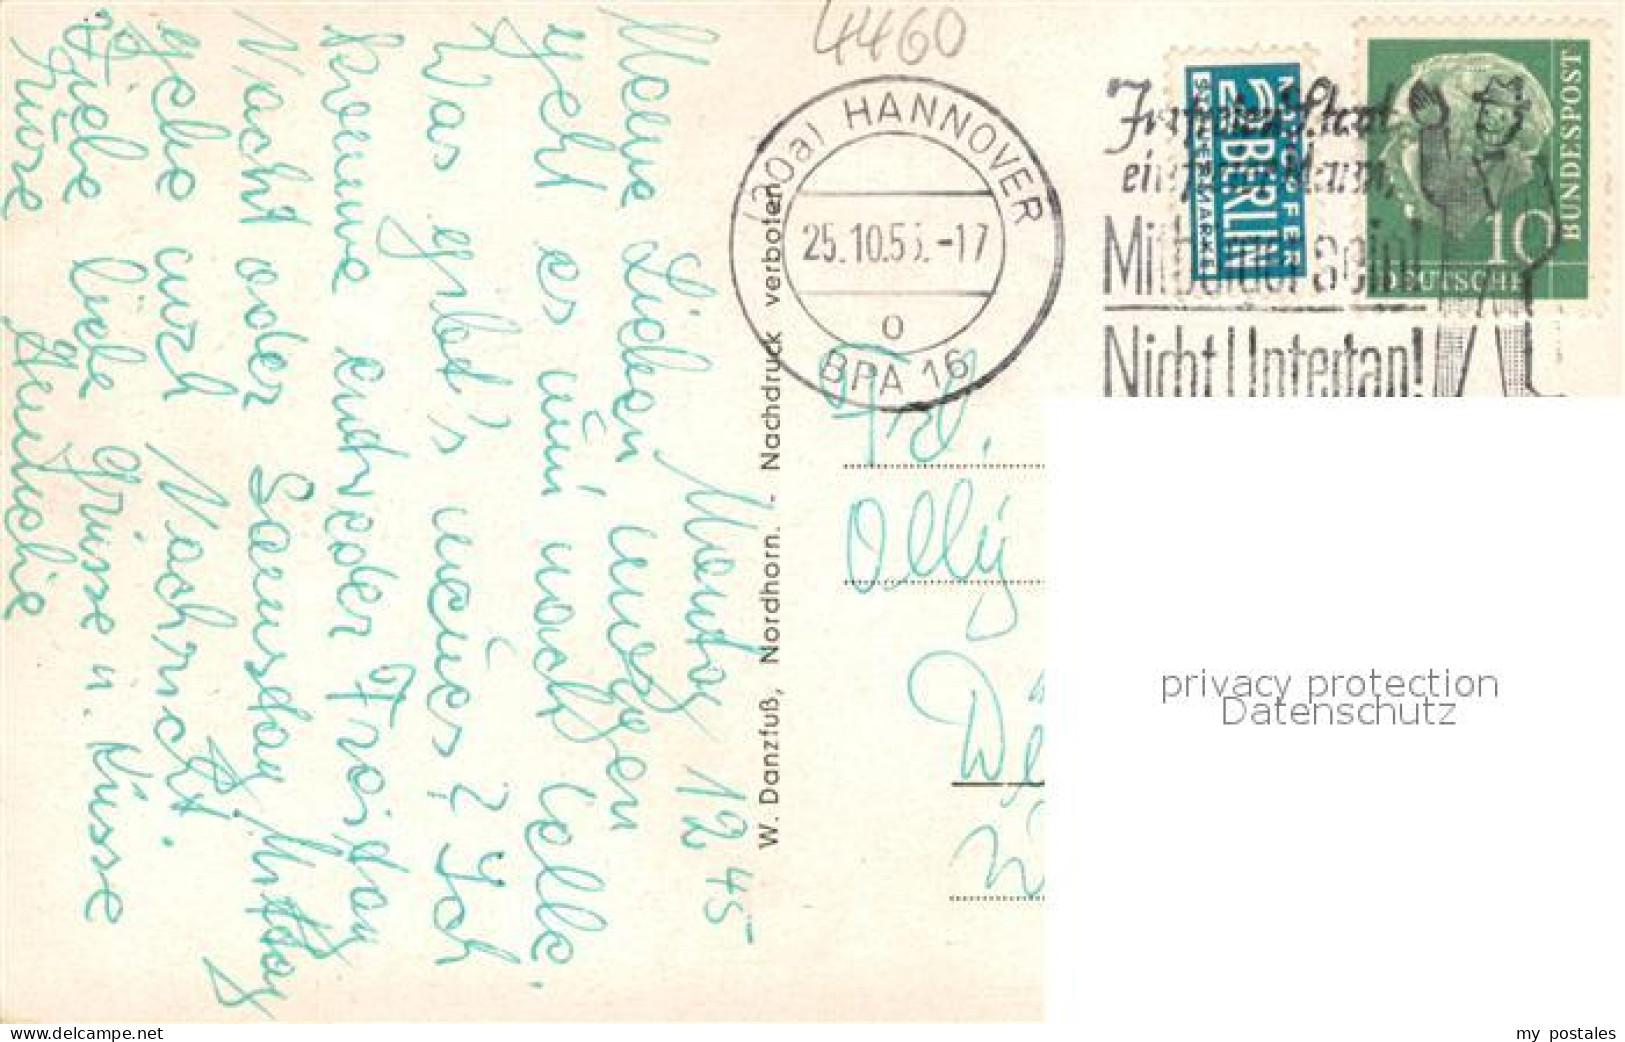 4460
(20a) HANNOVER
25.10.55.-17
o
BPA 16
Im freien Staat
ein freier Mann,
Mitbürger sein!
Nicht Untertan!
NOTOPFER
2 BERLIN
STEUERMARKE
10
DEUTSCHE
BUNDESPOST
Montag 12 45
Meine Lieben morgen
geht es nun nach Celle.
Was gibt's neues? Ich
komme entweder Freitag
Nacht oder Samstag Mittag
gebe euch Nachricht.
Viele liebe Grüsse u. Küsse
Heinichie
W. Danzfuß, Nordhorn. - Nachdruck verboten
Frl.
Olly
privacy protection
Datenschutz
www.delcampe.net
my postales